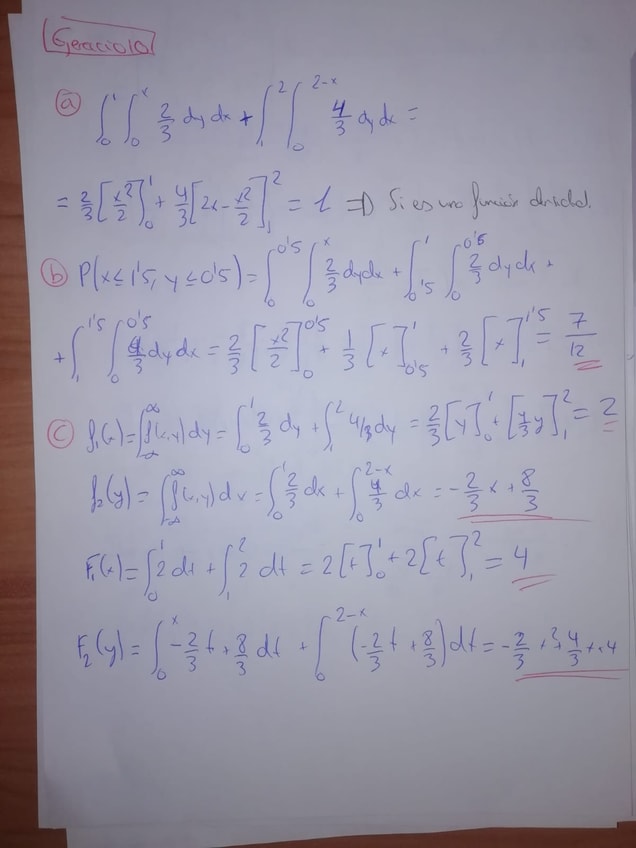 Ejercicio 10
a) ∫₀¹ ∫₀ˣ 2/3 dy dx + ∫₁² ∫₀²⁻ˣ 4/3 dy dx =
= 2/3 [x²/2]₀¹ + 4/3 [2x - x²/2]₁² = 1 ⇒ Si es una función densidad.
b) P(x ≤ 1'5, y ≤ 0'5) = ∫₀^0'5 ∫₀ˣ 2/3 dy dx + ∫_0'5^1 ∫₀^0'5 2/3 dy dx +
+ ∫₁^1'5 ∫₀^0'5 4/3 dy dx = 2/3 [x²/2]₀^0'5 + 1/3 [x]_0'5^1 + 2/3 [x]₁^1'5 = 7/12
c) f₁(x) = ∫_-∞^∞ f(x,y) dy = ∫₀¹ 2/3 dy + ∫₁² 4/3 dy = 2/3 [y]₀¹ + [4/3 y]₁² = 2
f₂(y) = ∫_-∞^∞ f(x,y) dx = ∫₀¹ 2/3 dx + ∫₀²⁻ˣ 4/3 dx = -2/3 x + 8/3
F₁(x) = ∫₀¹ 2 dt + ∫₁² 2 dt = 2[t]₀¹ + 2[t]₁² = 4
F₂(y) = ∫₀ˣ -2/3 t + 8/3 dt + ∫₀²⁻ˣ (-2/3 t + 8/3) dt = -2/3 x² + 4/3 x + 4